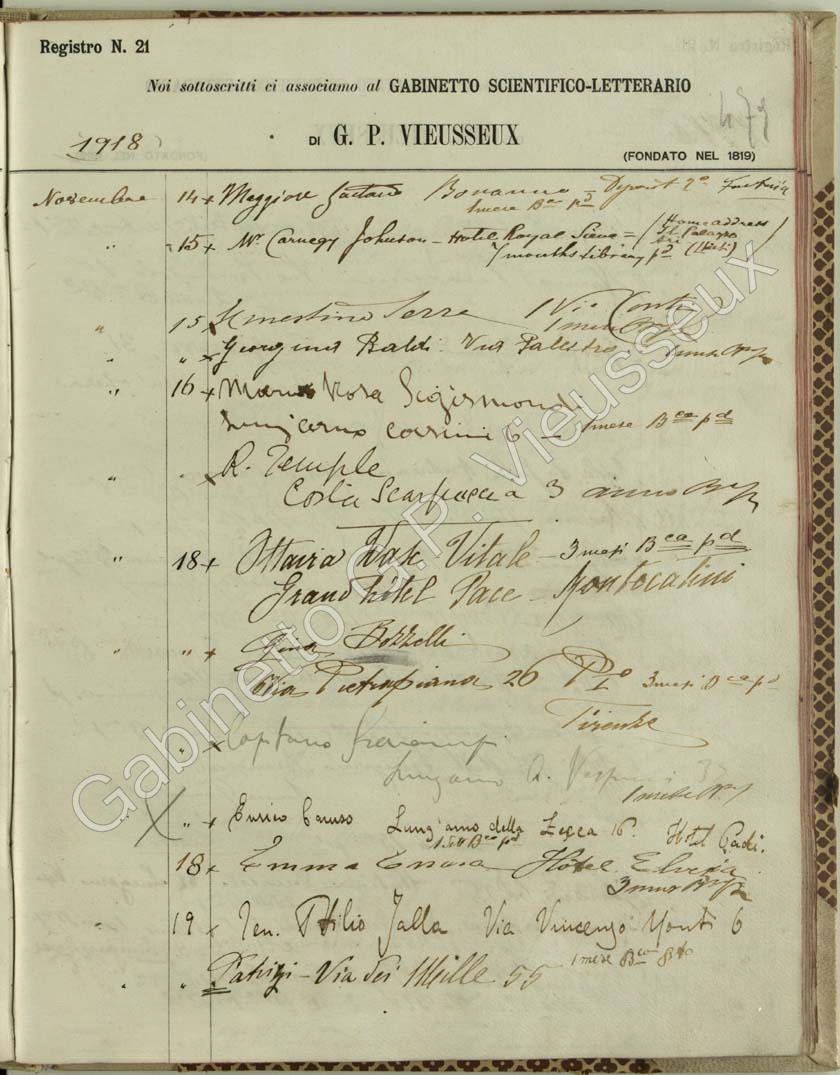 Registro N. 21
Noi sottoscritti ci associamo al GABINETTO SCIENTIFICO-LETTERARIO
479
1918
DI G. P. VIEUSSEUX
(FONDATO NEL 1819)
Novembre 14 Maggiore Gaetano Bonanno = Deposit 7°
1 mese Bca pd
" 15 Mr Carnegy Johnson - Hotel Royal Siena = (Home address
St. Palazzo
7 months library pd
" 15 Ernestina Serra 1 Via Conti
1 mese
" " Georgina Baldi Via Palestro 1 mese
" 16 Maria Rosa Sigismondi
Lungarno Corsini 6 - 1 mese Bca pd
" " R. Temple
Costa Scarpuccia 3 anno
" 18 Ottavia Vitale - 3 mesi Bca pd
Grand Hôtel Pace - Montecatini
" " Gina Bozzelli
Via Pietrapiana 26 P. I° 3 mesi Bca pd
Firenze
" Capitano
Lungarno A. Vespucci
1 mese
" Enrico Caruso Lung'arno della Zecca 16. Hotel
Bca pd
18 Emma Hotel Elvezia
3 mesi
19 Ten. Attilio Jalla Via Vincenzo Monti 6
1 mese Bca
" " Patrizi - Via dei Mille 55
Gabinetto G.P. Vieusseux